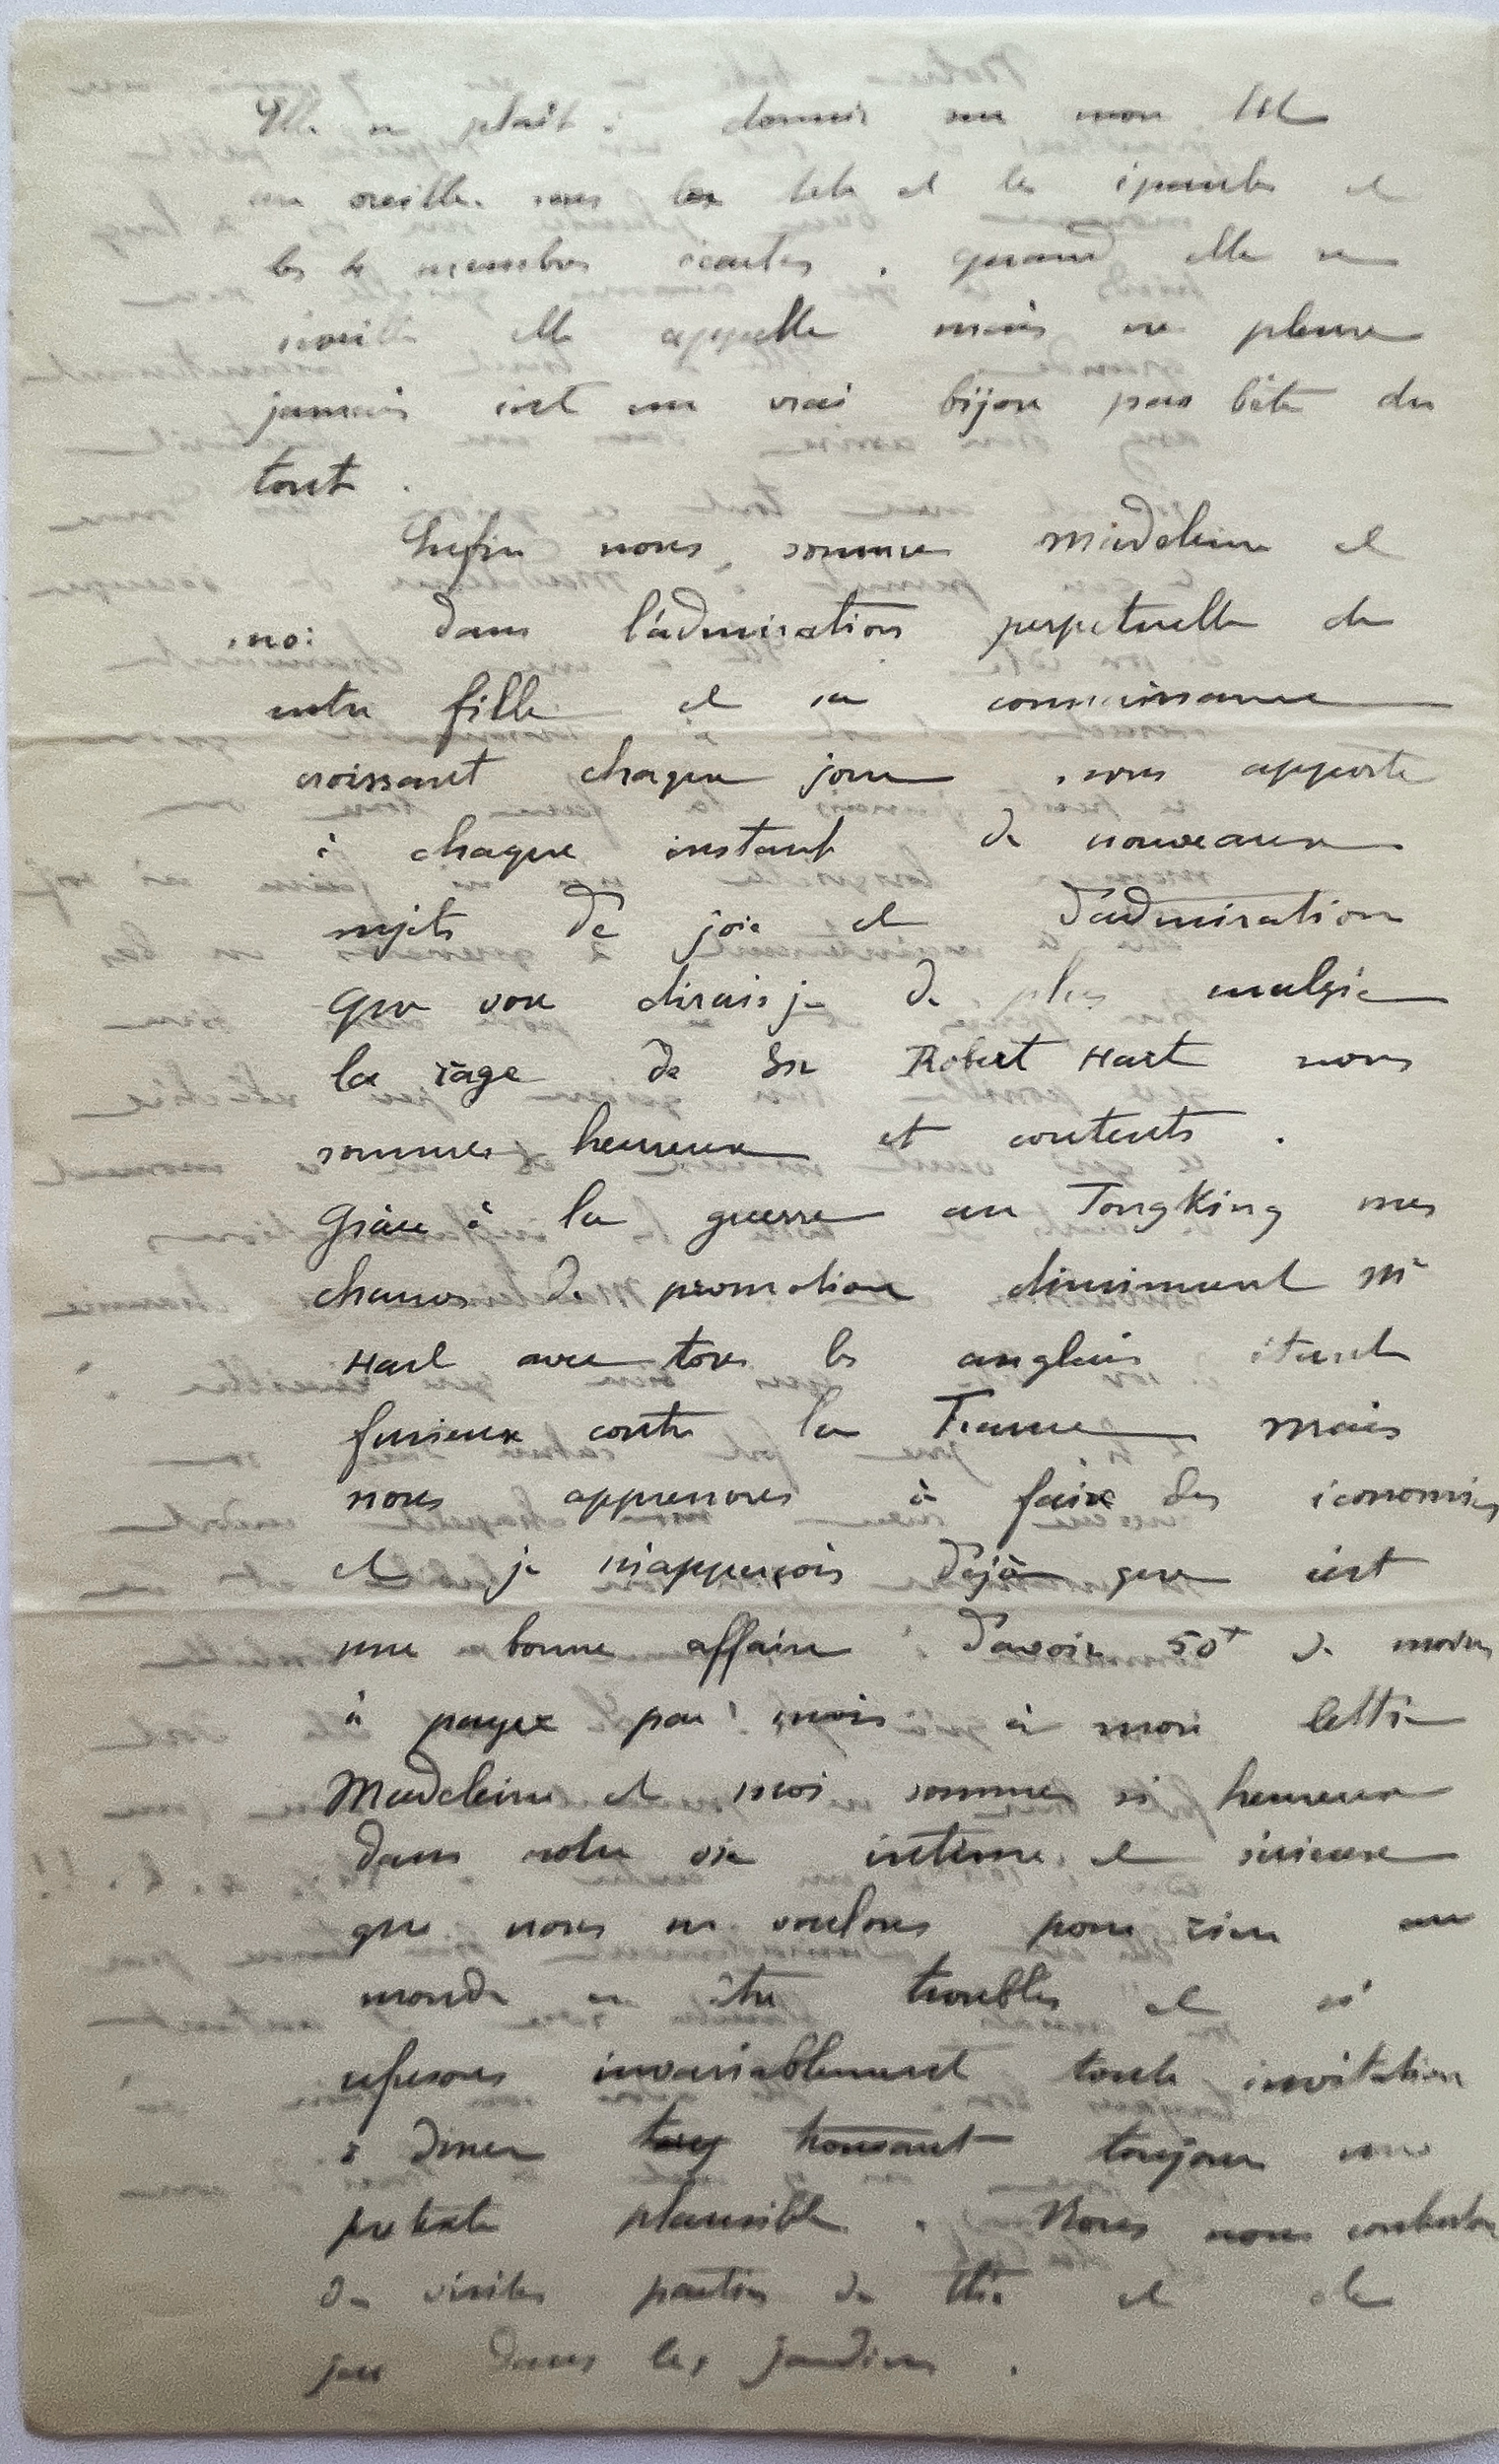 Elle se plait à dormir sur mon lit
un oreiller sous la tete et les épaules et
les 4 membres écartés . quand elle se
éveille elle appelle mais ne pleure
jamais c'est un vrai bijou pas bête du
tout .
Enfin nous sommes Madeleine et
moi dans l'admiration perpetuelle de
notre fille et sa connaissance
croissant chaque jour nous apporte
à chaque instant de nouveaux
sujets de joie et d'admiration
que vous dirais je de plus malgré
la rage de Sir Robert Hart nous
sommes heureux et contents .
Grâce à la guerre au TongKing mes
chances de promotion diminuent Mr
Hart avec tous les anglais étant
furieux contre la France mais
nous apprenons à faire des économies
et je m'apperçois déjà que c'est
une bonne affaire d'avoir 50+ de moins
à payer par mois à mon lettré
Madeleine et moi sommes si heureux
dans notre vie intime et sérieuse
que nous ne voulons pour rien au
monde en être troublés et
refusons invariablement toute invitation
à diner trouvant toujours un
pretexte plausible . Nous nous contentons
de visites parties de thé et de
jeu dans les jardins .